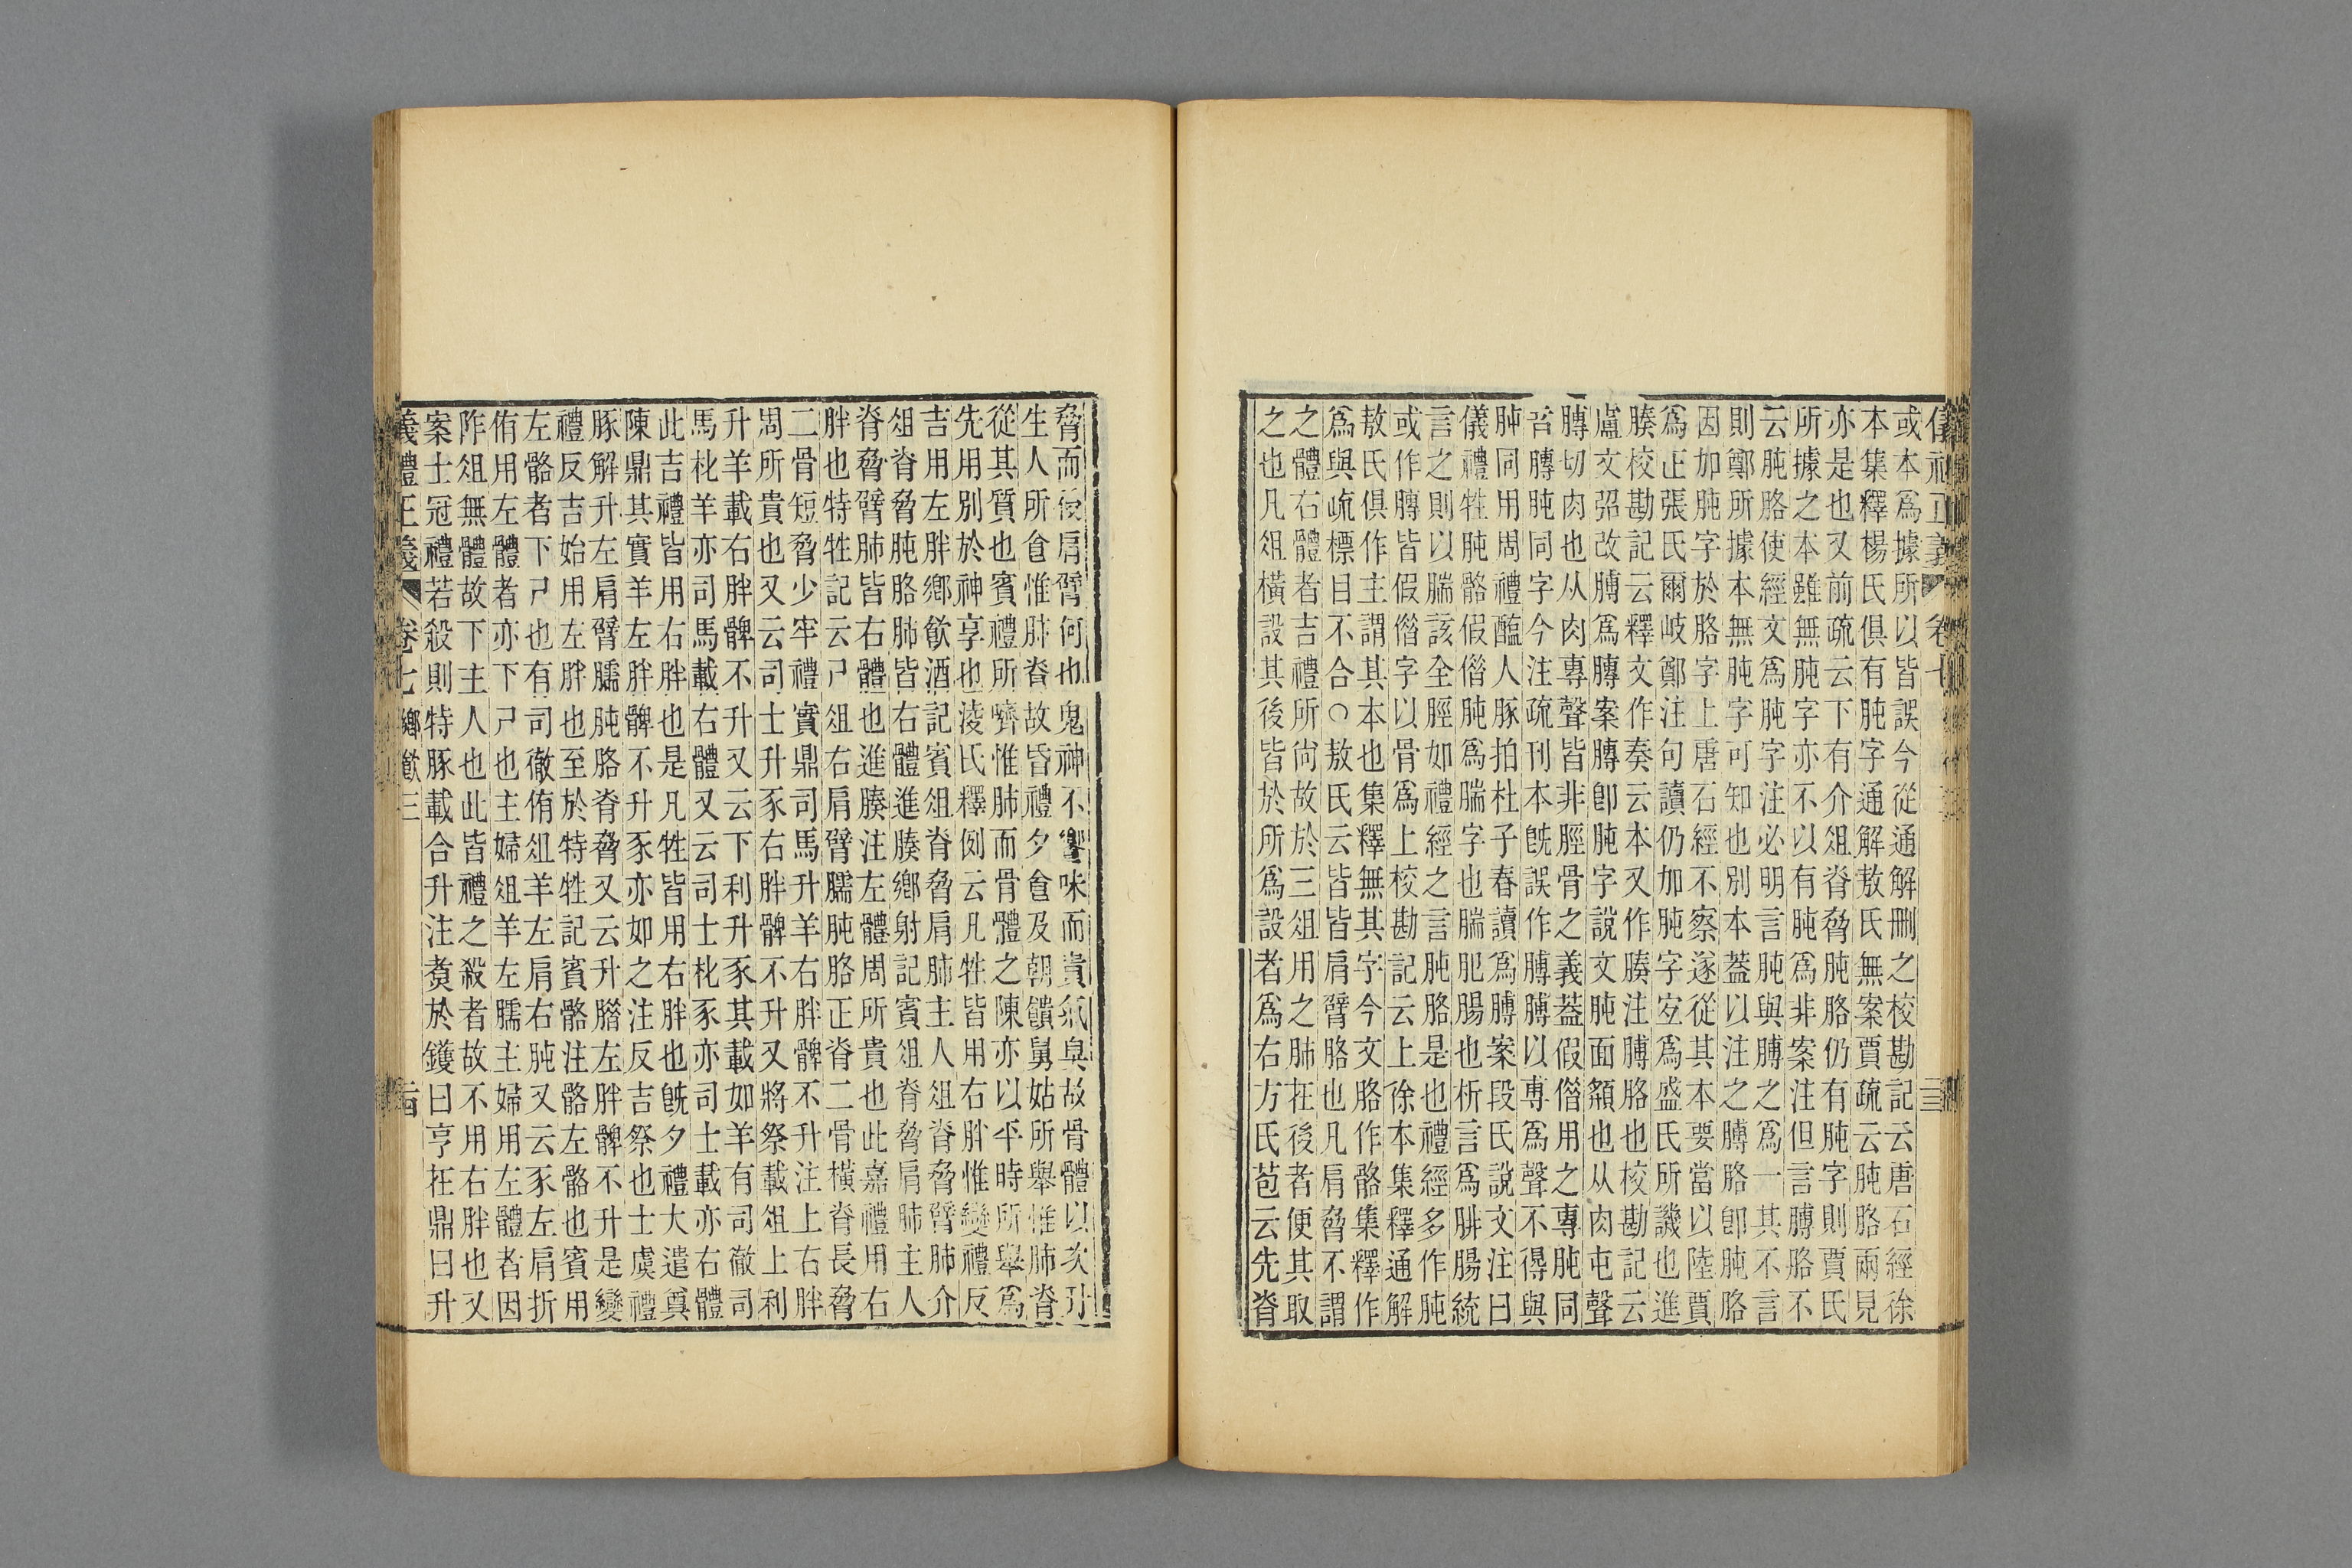 或本爲據所以皆誤今從通解刪之校勘記云唐石經徐
本集釋楊氏俱有肫字通解敖氏無案賈疏云肫胳兩見
亦是也又前疏云下有介俎脊脅肫胳仍有肫字則賈氏
所據之本雖無肫字亦不以有肫爲非案注但言膊胳不
云肫胳使經文爲肫字注必明言肫與膊之爲一其不言
則鄭所據本無肫字可知也別本蓋以注之膊胳卽肫胳
因加肫字於胳字上唐石經不察遂從其本要當以陸賈
爲正張氏爾岐鄭注句讀仍加肫字宐爲盛氏所譏也進
腠校勘記云釋文作奏云本又作腠注膊胳也校勘記云
盧文弨改膊爲膞案膞卽肫字說文肫面頯也从肉屯聲
膞切肉也从肉專聲皆非脛骨之義蓋假借用之專肫同
音膞肫同字今注疏刊本旣誤作膊膊以專爲聲不得與
肫同用周禮醢人豚拍杜子春讀爲膊案段氏說文注曰
儀禮牲肫骼假借肫爲腨字也腨腓腸也析言爲腓腸統
言之則以腨該全脛如禮經之言肫胳是也禮經多作肫
或作膞皆假借字以骨爲上校勘記云上徐本集釋通解
敖氏俱作主謂其本也集釋無其字今文胳作骼集釋作
爲與疏標目不合○敖氏云皆皆肩臂胳也凡肩脅不謂
之體右體者吉禮所尚故於三俎用之肺在後者便其取
之也凡俎橫設其後皆於所爲設者爲右方氏苞云先脊
脅而後肩臂何也鬼神不饗味而貴氣臭故骨體以次升
生人所食惟肺脊故昏禮夕食及朝饋舅姑所舉惟肺脊
從其質也賓禮所嚌惟肺而骨體之陳亦以平時所舉爲
先用別於神享也淩氏釋例云凡牲皆用右胖惟變禮反
吉用左胖鄉飮酒記賓俎脊脅肩肺主人俎脊脅臂肺介
俎脊脅肫胳肺皆右體進腠鄉射記賓俎脊脅肩肺主人
脊脅臂肺皆右體也進腠注左體周所貴也此嘉禮用右
胖也特牲記云尸俎右肩臂臑肫胳正脊二骨橫脊長脅
二骨短脅少牢禮實鼎司馬升羊右胖髀不升注上右胖
周所貴也又云司士升豕右胖髀不升又將祭載俎上利
升羊載右胖髀不升又云下利升豕其載如羊有司徹司
馬朼羊亦司馬載右體又云司士朼豕亦司士載亦右體
此吉禮皆用右胖也是凡牲皆用右胖也旣夕禮大遣奠
陳鼎其實羊左胖髀不升豕亦如之注反吉祭也士虞禮
豚解升左肩臂臑肫胳脊脅又云升腊左胖髀不升是變
禮反吉始用左胖也至於特牲記賓骼注骼左骼也賓用
左骼者下尸也有司徹侑俎羊左肩右肫又云豕左肩折
侑用左體者亦下尸也主婦俎羊左臑主婦用左體者因
阼俎無體故下主人也此皆禮之殺者故不用右胖也又
案士冠禮若殺則特豚載合升注煑於鑊曰亨在鼎曰升
義禮正義 卷七 鄉飮三 二四